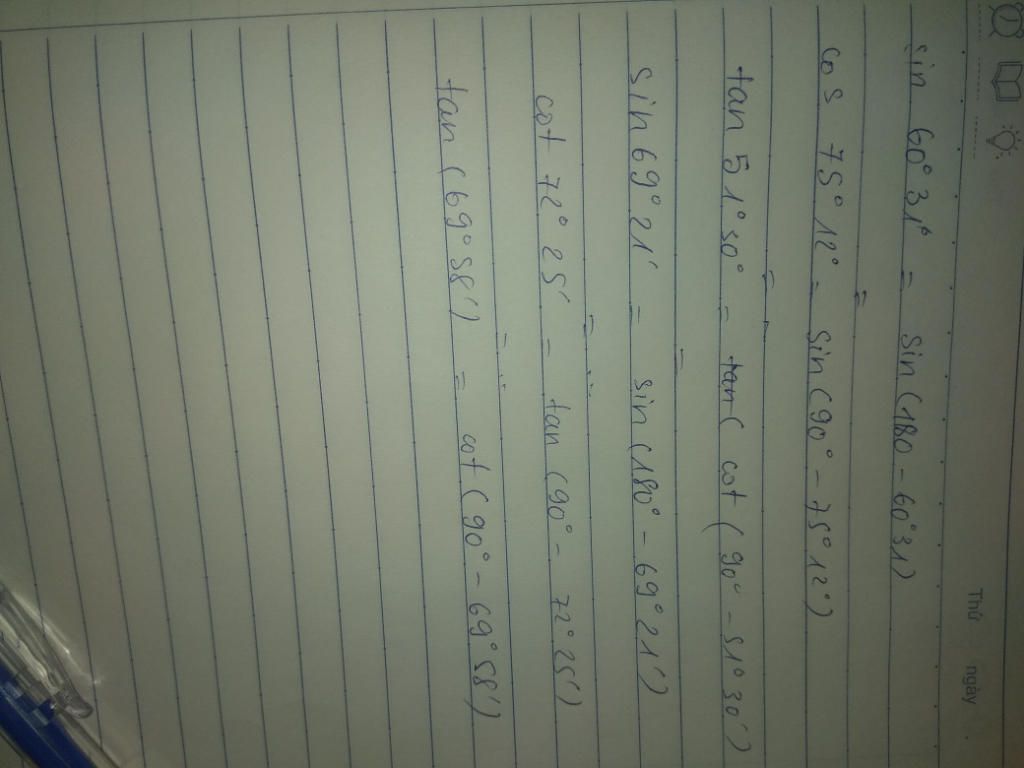 Thứ ngày
sin 60° 31' = sin (180 - 60° 31)
=
cos 75° 12° = sin (90° - 75° 12°)
=
tan 51° 30° = tan( cot (90° - 51° 30')
=
sin 69° 21' = sin (180° - 69° 21')
= ...
cot 72° 25' = tan (90° - 72° 25')
= ...
tan (69° 58') = cot (90° - 69° 58')